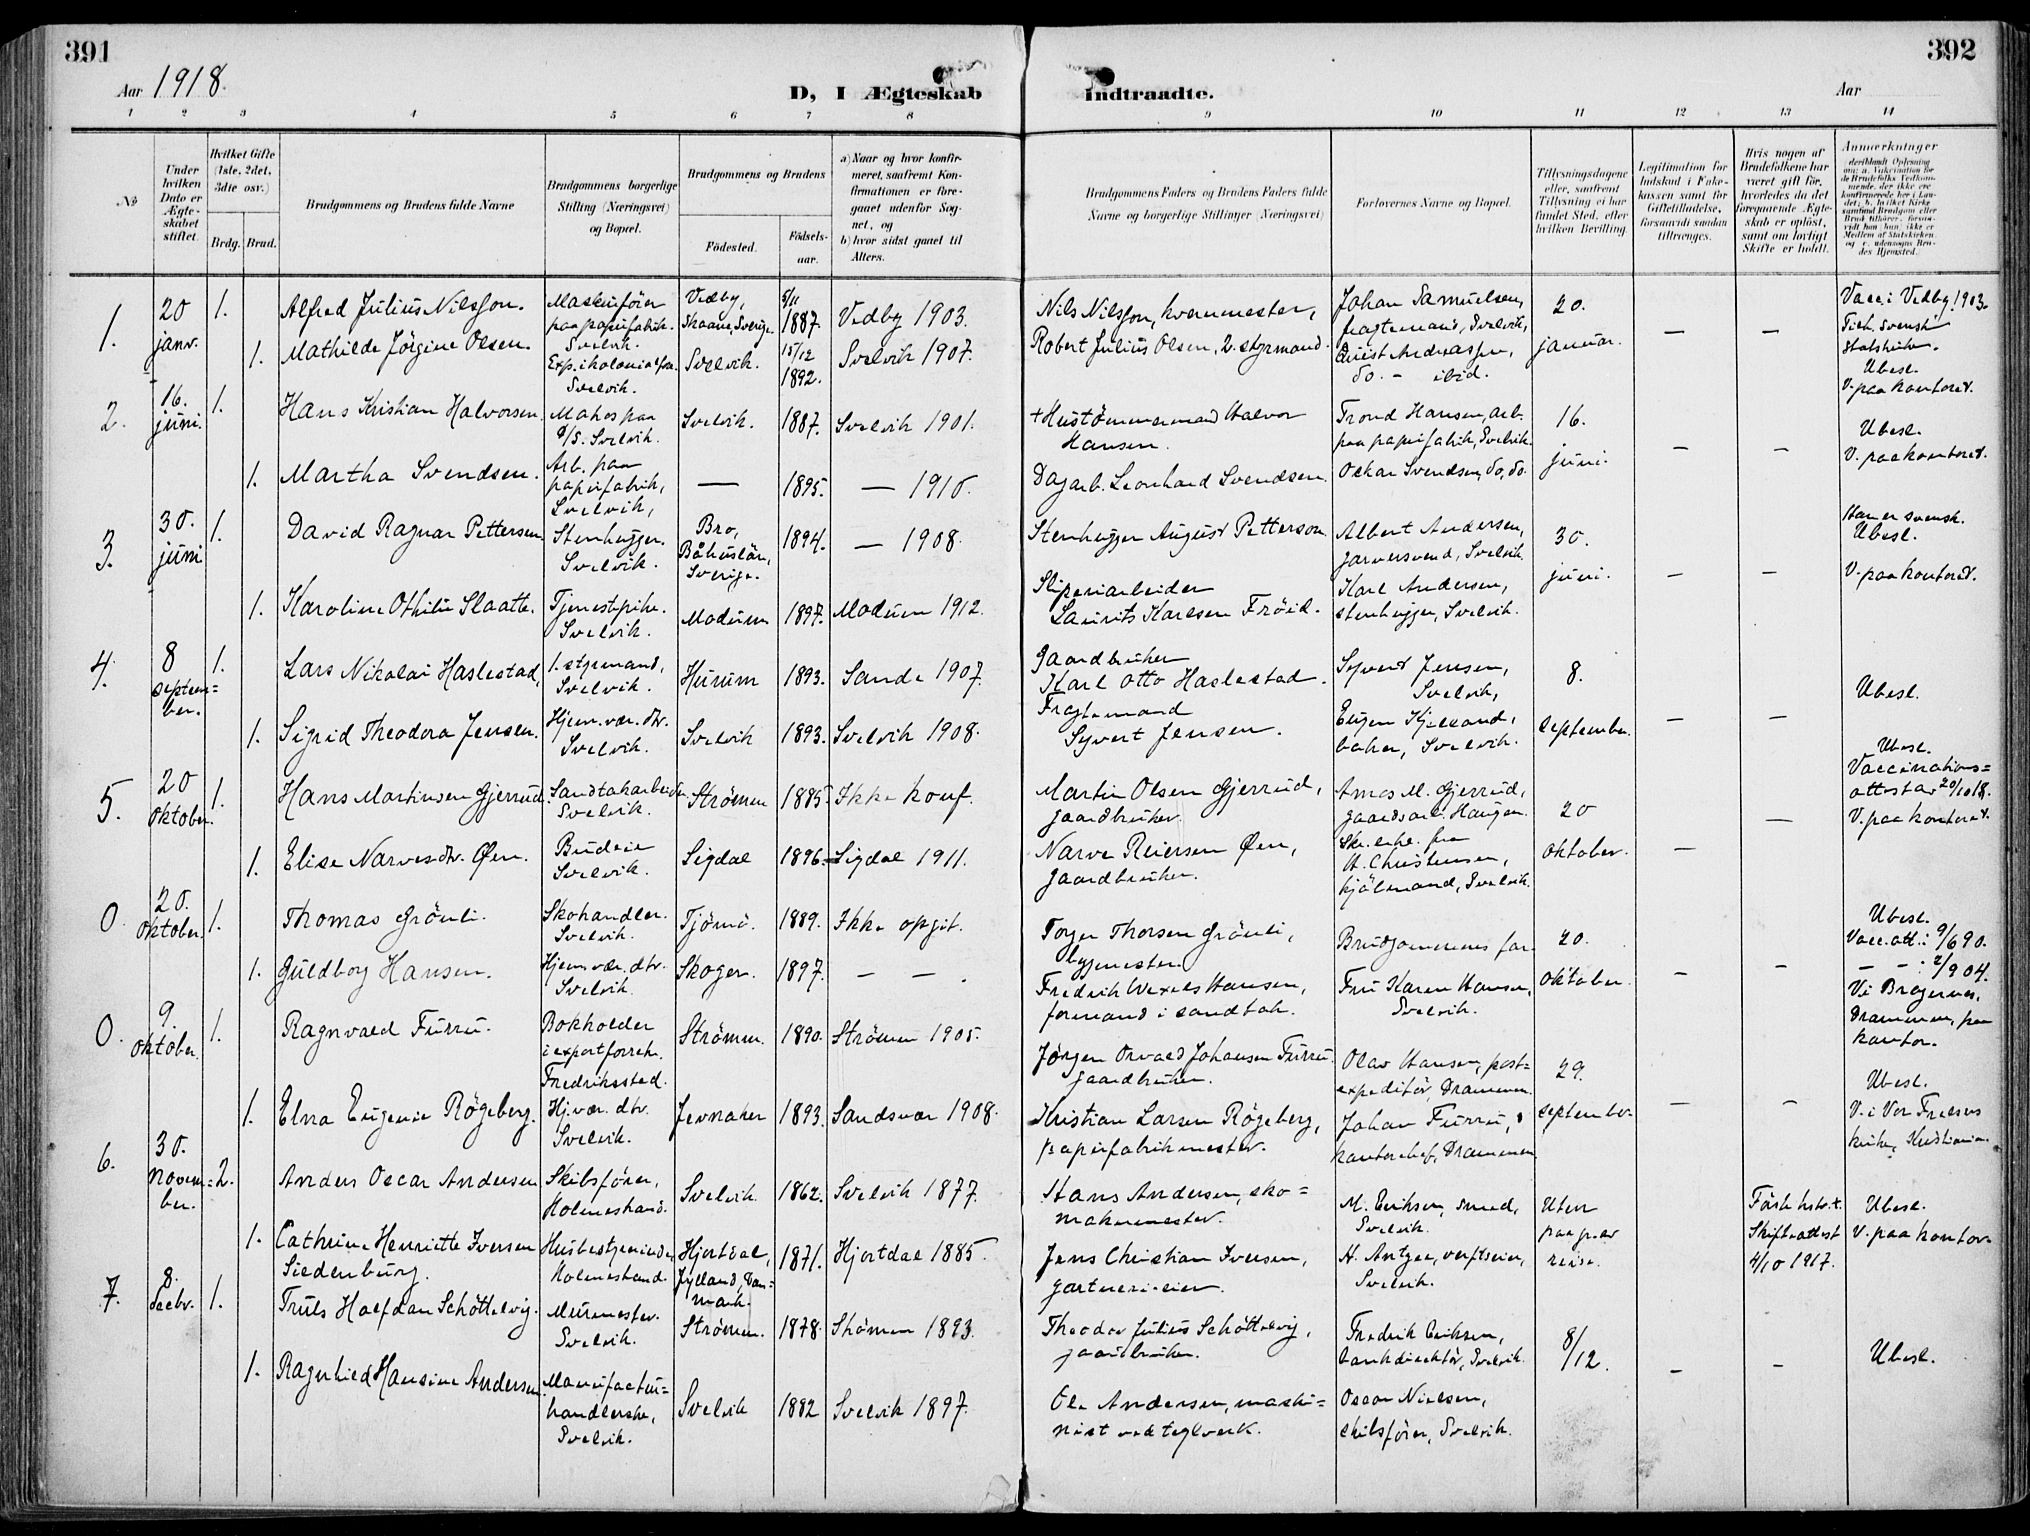 391
392
Aar 1918.
D, I Ægteskab Indtraadte.
Aar
1 2 3 4 5 6 7 8 9 10 11 12 13 14
№
Under hvilken Dato er Ægteskabet stiftet.
Hvilket Gifte (1ste, 2det, 3dte osv.)
Brdg. Brud.
Brudgommens og Brudens fulde Navne
Brudgommens borgerlige Stilling (Næringsvei) og Bopæl.
Brudgommens og Brudens
Födested.
Födselsaar.
a) Naar og hvor konfirmeret, saafremt Konfirmationen er foregaaet udenfor Sognet, og
b) hvor sidst gaaet til Alters.
Brudgommens Faders og Brudens Faders fulde Navne og borgerlige Stillinger (Næringsvei)
Forlovernes Navne og Bopæl.
Tillysningsdagene eller, saafremt Tillysning ei har fundet Sted, efter hvilken Bevilling.
Legitimation for Indskud i Enkekassen samt for Giftetilladelse, forsaavidt saadan tiltrænges.
Hvis nogen af Brudefolkene har været gift før, hvorledes da det foregaaende Ægteskab er opløst, samt om lovligt Skifte er holdt.
Anmærkninger
1. 20 janv. 1. Alfred Julius Nilsson. Maskinfører paa papirfabrik. Svelvik. Vedby, Skaane, Sverige. 5/11 1887. Vedby 1903. Nils Nilsson, kvernmester, Johan Samuelsen, fragtemand, Svelvik, 20. januar. — — Vacc. i Vedby 1903.
1. Mathilde Jørgine Olsen. Exp. i kolonialforr. Svelvik. Svelvik. 15/12 1892. Svelvik 1907. Robert Julius Olsen, 2. styrmand. Andreassen, do. - ibid. Ubesl. V. paa kontoret.
2. 16. juni. 1. Hans Kristian Halvorsen. Matros paa S/S. Svelvik. Svelvik. 1887. Svelvik 1901. + Hustömmermand Halvor Hansen. Trond Hansen, arb. paa papirfabrik, Svelvik. 16. juni. — — Ubesl. V. paa kontoret.
1. Martha Svendsen. Arb. paa papirfabrik, Svelvik, — 1895. — 1910. Dagarb. Leonhard Svendsen. Oskar Svendsen, do, do.
3. 30. juni 1. David Ragnar Pettersen Stenhugger. Svelvik. Bro, Båhuslän, Sverige. 1894. — 1908. Stenhugger August Petterson Albert Andersen, garversvend, Svelvik. 30. juni. — — Han er svensk. Ubesl. V. paa kontoret.
1. Karoline Othilie Slaatte. Tjenestepike. Svelvik. Modum 1897. Modum 1912. Sliperiarbeider Laurits Karlsen Frøid. Karl Andersen, stenhugger, Svelvik.
4. 8 september. 1. Lars Nikolai Haslestad, 1. styrmand, Svelvik. Hurum 1893. Sande 1907. Gaardbruker Karl Otto Haslestad. Syvert Jensen, Svelvik, 8. september. — — Ubesl.
1. Sigrid Theodora Jensen. Hjem.vær. dtr. Svelvik. Svelvik 1893. Svelvik 1908. Fragtemand Syvert Jensen. Eugen Kjelsand, baker, Svelvik.
5. 20 oktober. 1. Hans Martinsen Gjerrud. Sandtakarbeider Svelvik. Strømm 1885 Ikke konf. Martin Olsen Gjerrud, gaardbruker. M. Gjerrud, gaardsarb. Haugen. 20 oktober. — — Ubesl. Vaccinationsattest av 20/10 18. V. paa kontoret.
1. Elise Narvesdtr. Øen. Budeie Svelvik. Sigdal 1896. Sigdal 1911. Narve Reiersen Øen, gaardbruker. H. Christensen, Svelvik.
0. 20. oktober. 1. Thomas Grönli. Skohandler. Svelvik. Tjømö. 1889. Ikke opgit. Torger Thorsen Grönli, bygmester. Brudgommens far 20. oktober. — — Ubesl. Vacc.att.: 9/6 90. — — : 2/9 04. V. i Bragernes, Drammen, paa kontor.
1. Guldborg Hansen. Hjem.vær. dtr. Svelvik. Skoger. 1897. — — . Fredrik Wexels Hansen, formand i sandtak. Fru Karen Hansen, Svelvik.
0. 9. oktober. 1. Ragnvald Furru. Bokholder i exportforretn. Fredriksstad. Strømm. 1890. Strømm 1905. Jørgen Osvald Johansen Furru gaardbruker. Olav Hansen, postexpeditör, Drammen. 29. september — — Ubesl. V. i Vor Frelsers kirke, Kristiania.
1. Elna Eugenie Rögeberg. Hj.vær. dtr. Svelvik. Jevnaker 1893. Sandsvær 1908. Kristian Larsen Rögeberg, papirfabrikmester. Johan Furru, kontorchef, Drammen.
6. 30. november. 2. Anders Oscar Andersen Skibsförer, Holmestrand. Svelvik. 1862. Svelvik 1877. Hans Andersen, skomakermester. M. Eriksen, smed, Svelvik. Uten Første hstr. † Skifteattest 4/10 1917. Ubesl. V. paa kontor.
1. Cathrine Henriette Iversen Siedenburg. Husbestyrerinde Holmestrand. Hjortdal, Jylland, Danmark. 1871. Hjortdal 1885. Jens Christian Iversen, gartnerieier. H. Antzee, verftseier, Svelvik.
7. 8. decbr. 1. Truls Halfdan Schöttelvig. Murmester. Svelvik. Strømm. 1878. Strømm 1893. Theodor Julius Schöttelvig, gaardbruker. Fredrik Eriksen, bankdirektör, Svelvik. 8/12. — — Ubesl.
1. Ragnhild Hansine Andersen. Manufacturhandlerske, Svelvik. Svelvik 1882 Svelvik 1897. Ole Andersen, maskinist ved teglverk. Oscar Nielsen, skibsförer, Svelvik.